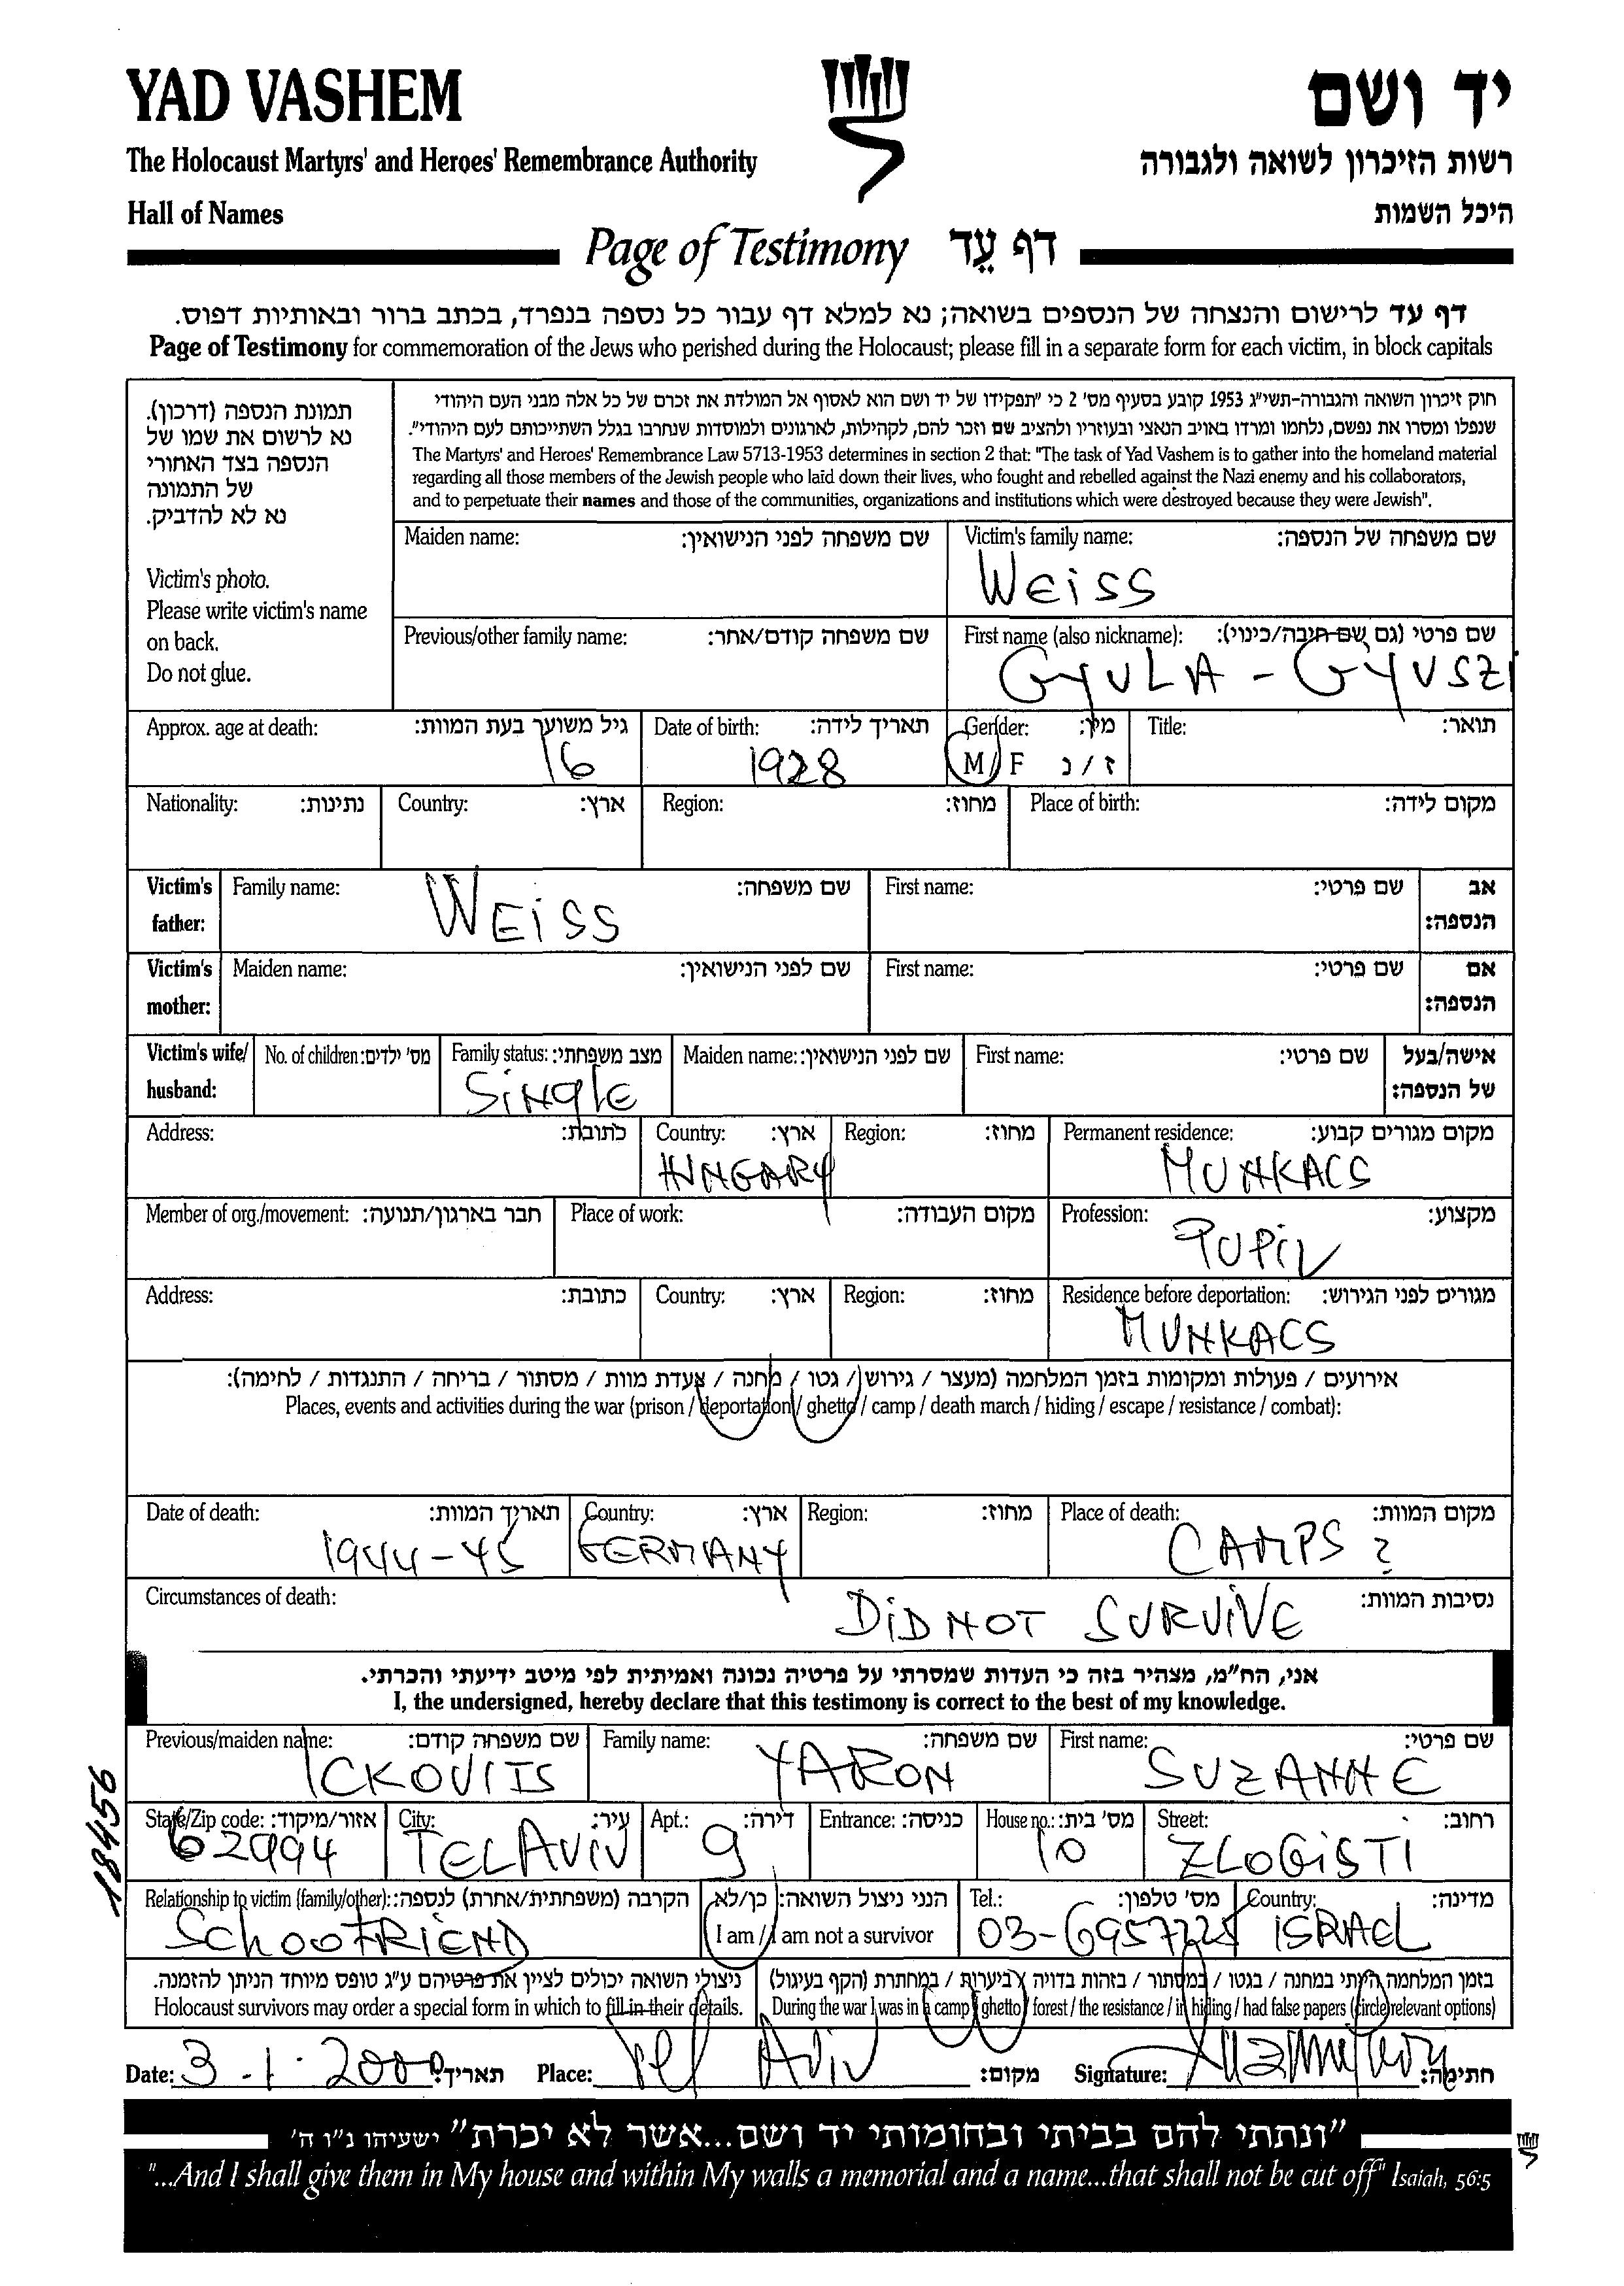 YAD VASHEM
יד ושם
The Holocaust Martyrs' and Heroes' Remembrance Authority
רשות הזיכרון לשואה ולגבורה
Hall of Names
היכל השמות
Page of Testimony דף עֵד
דף עד לרישום והנצחה של הנספים בשואה; נא למלא דף עבור כל נספה בנפרד, בכתב ברור ובאותיות דפוס.
Page of Testimony for commemoration of the Jews who perished during the Holocaust; please fill in a separate form for each victim, in block capitals
תמונת הנספה (דרכון).
נא לרשום את שמו של
הנספה בצד האחורי
של התמונה
נא לא להדביק.
Victim's photo.
Please write victim's name
on back.
Do not glue.
חוק זיכרון השואה והגבורה-תשי"ג 1953 קובע בסעיף מס' 2 כי "תפקידו של יד ושם הוא לאסוף אל המולדת את זכרם של כל אלה מבני העם היהודי
שנפלו ומסרו את נפשם, נלחמו ומרדו באויב הנאצי ובעוזריו ולהציב שם וזכר להם, לקהילות, לארגונים ולמוסדות שנחרבו בגלל השתייכותם לעם היהודי".
The Martyrs' and Heroes' Remembrance Law 5713-1953 determines in section 2 that: "The task of Yad Vashem is to gather into the homeland material
regarding all those members of the Jewish people who laid down their lives, who fought and rebelled against the Nazi enemy and his collaborators,
and to perpetuate their names and those of the communities, organizations and institutions which were destroyed because they were Jewish".
Maiden name: שם משפחה לפני הנישואין:
Victim's family name: שם משפחה של הנספה:
WEISS
Previous/other family name: שם משפחה קודם/אחר:
First name (also nickname): שם פרטי (גם שם חיבה/כינוי):
GYULA - GYUSZI
Approx. age at death: גיל משוער בעת המוות:
16
Date of birth: תאריך לידה:
1928
Gender: מין:
M / F ז / נ
Title: תואר:
Nationality: נתינות:
Country: ארץ:
Region: מחוז:
Place of birth: מקום לידה:
Victim's father:
Family name: שם משפחה:
WEISS
First name: שם פרטי:
אב הנספה:
Victim's mother:
Maiden name: שם לפני הנישואין:
First name: שם פרטי:
אם הנספה:
Victim's wife/ husband:
No. of children: מס' ילדים:
Family status: מצב משפחתי:
SINGLE
Maiden name: שם לפני הנישואין:
First name: שם פרטי:
אישה/בעל של הנספה:
Address: כתובת:
Country: ארץ:
HUNGARY
Region: מחוז:
Permanent residence: מקום מגורים קבוע:
MUNKACS
Member of org./movement: חבר בארגון/תנועה:
Place of work: מקום העבודה:
Profession: מקצוע:
PUPIL
Address: כתובת:
Country: ארץ:
Region: מחוז:
Residence before deportation: מגורים לפני הגירוש:
MUNKACS
אירועים / פעולות ומקומות בזמן המלחמה (מעצר / גירוש / גטו / מחנה / צעדת מוות / מסתור / בריחה / התנגדות / לחימה):
Places, events and activities during the war (prison / deportation / ghetto / camp / death march / hiding / escape / resistance / combat):
Date of death: תאריך המוות:
1944-45
Country: ארץ:
GERMANY
Region: מחוז:
Place of death: מקום המוות:
CAMPS ?
Circumstances of death: נסיבות המוות:
DID NOT SURVIVE
אני, הח"מ, מצהיר בזה כי העדות שמסרתי על פרטיה נכונה ואמיתית לפי מיטב ידיעתי והכרתי.
I, the undersigned, hereby declare that this testimony is correct to the best of my knowledge.
Previous/maiden name: שם משפחה קודם:
ICKOVITS
Family name: שם משפחה:
YARON
First name: שם פרטי:
SUZANNE
State/Zip code: אזור/מיקוד:
62994
City: עיר:
TEL AVIV
Apt.: דירה:
9
Entrance: כניסה:
House no.: מס' בית:
10
Street: רחוב:
ZLOGISTI
Relationship to victim (family/other): הקרבה (משפחתית/אחרת) לנספה:
SCHOOFRIEND
הנני ניצול השואה: כן/לא
I am / I am not a survivor
Tel.: מס' טלפון:
03-6957225
Country: מדינה:
ISRAEL
ניצולי השואה יכולים לציין את פרטיהם ע"ג טופס מיוחד הניתן להזמנה.
Holocaust survivors may order a special form in which to fill in their details.
בזמן המלחמה הייתי במחנה / בגטו / במסתור / בזהות בדויה / ביערות / במחתרת (הקף בעיגול)
During the war I was in a camp / ghetto / forest / the resistance / in hiding / had false papers (circle relevant options)
Date: 3.1.2000 תאריך:
Place: Tel Aviv מקום:
Signature: חתימה:
18456
"ונתתי להם בביתי ובחומותי יד ושם...אשר לא יכרת" ישעיהו נ"ו ה'
"...And I shall give them in My house and within My walls a memorial and a name...that shall not be cut off" Isaiah, 56:5